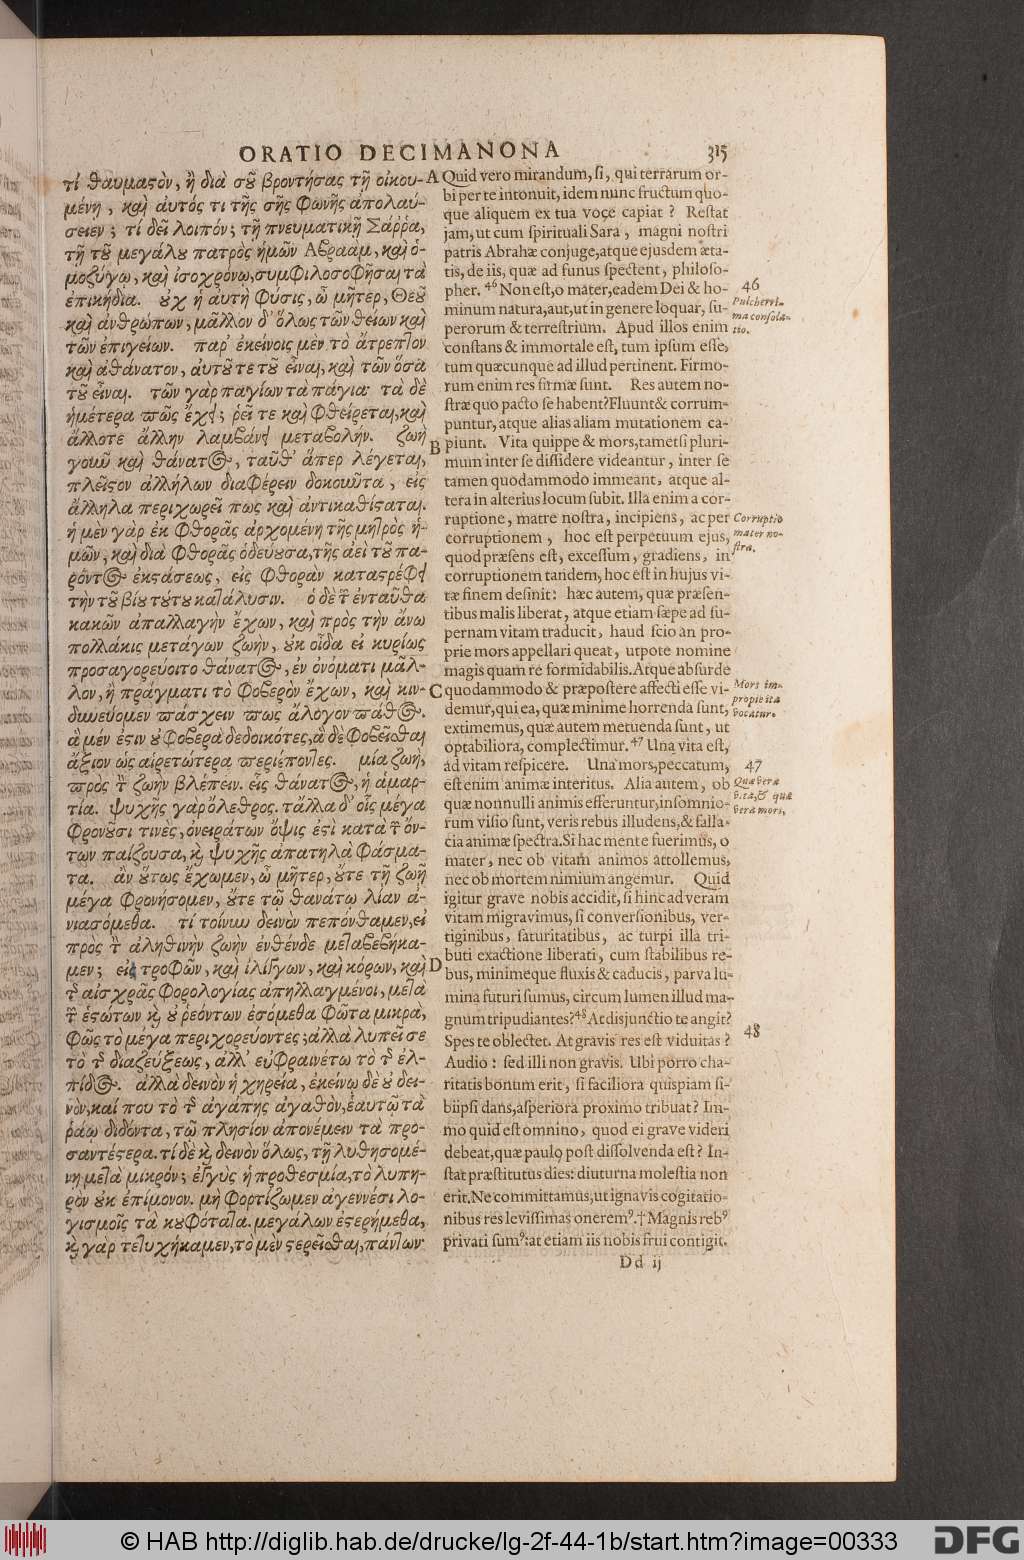 ORATIO DECIMANONA
315
τί θαυμαστὸν, ἢ διὰ σοῦ βροντήσας τῇ οἰκου-
μένῃ, καὶ αὐτός τι τῆς σῆς φωνῆς ἀπολαύ-
σειεν; τί δεῖ λοιπόν; τῇ πνευματικῇ Σάῤῥᾳ,
τῇ τοῦ μεγάλου πατρὸς ἡμῶν Αβραὰμ, καὶ ὁ-
μοζύγῳ, καὶ ἰσοχρόνῳ, συμφιλοσοφῆσαι τὰ
ἐπικήδια. οὐχ ἡ αὐτὴ φύσις, ὦ μῆτερ, Θεοῦ
καὶ ἀνθρώπων, μᾶλλον δ' ὅλως τῶν θείων καὶ
τῶν ἐπιγείων. παρ' ἐκείνοις μὲν τὸ ἄτρεπτον
καὶ ἀθάνατον, αὐτοῦ τε τοῦ εἶναι, καὶ τῶν ὅσα
τοῦ εἶναι. τῶν γὰρ παγίων τὰ πάγια· τὰ δὲ
ἡμέτερα πῶς ἔχει; ῥεῖ τε καὶ φθείρεται, καὶ
ἄλλοτε ἄλλην λαμβάνει μεταβολήν. ζωὴ
γοῦν καὶ θάνατος, ταῦθ' ἅπερ λέγεται,
πλεῖστον ἀλλήλων διαφέρειν δοκοῦντα, εἰς
ἄλληλα περιχωρεῖ πως καὶ ἀντικαθίσταται.
ἡ μὲν γὰρ ἐκ φθορᾶς ἀρχομένη τῆς μητρὸς ἡ-
μῶν, καὶ διὰ φθορᾶς ὁδεύουσα, τῆς ἀεὶ τοῦ πα-
ρόντος ἐκστάσεως, εἰς φθορὰν καταστρέφει
τὴν τοῦ βίου τούτου κατάλυσιν. ὁ δὲ τῶν ἐνταῦθα
κακῶν ἀπαλλαγὴν ἔχων, καὶ πρὸς τὴν ἄνω
πολλάκις μετάγων ζωὴν, οὐκ οἶδα εἰ κυρίως
προσαγορεύοιτο θάνατος, ἐν ὀνόματι μᾶλ-
λον, ἢ πράγματι τὸ φοβερὸν ἔχων, καὶ κιν-
δυνεύομεν πάσχειν πως ἄλογον πάθος.
ἃ μέν ἐστιν οὐ φοβερὰ δεδοικότες, ἃ δὲ φοβεῖσθαι
ἄξιον ὡς αἱρετώτερα περιέποντες. μία ζωὴ,
πρὸς τὴν ζωὴν βλέπειν. εἷς θάνατος, ἡ ἁμαρ-
τία. ψυχῆς γὰρ ὄλεθρος. τἄλλα δ' οἷς μέγα
φρονοῦσί τινὲς, ὀνειράτων ὄψις ἐστὶ κατὰ τῶν ὄν-
των παίζουσα, καὶ ψυχῆς ἀπατηλὰ φάσμα-
τα. ἂν οὕτως ἔχωμεν, ὦ μῆτερ, οὔτε τῇ ζωῇ
μέγα φρονήσομεν, οὔτε τῷ θανάτῳ λίαν ἀ-
νιασόμεθα. τί τοίνυν δεινὸν πεπόνθαμεν, εἰ
πρὸς τὴν ἀληθινὴν ζωὴν ἐνθένδε μεταβεβήκα-
μεν; εἰ στροφῶν, καὶ ἰλίγγων, καὶ κόρων, καὶ
τῆς αἰσχρᾶς φορολογίας ἀπηλλαγμένοι, μετὰ
τῶν ἑστώτων καὶ οὐ ῥεόντων ἐσόμεθα φῶτα μικρὰ,
φῶς τὸ μέγα περιχορεύοντες; ἀλλὰ λυπεῖ σε
τὸ τῆς διαζεύξεως, ἀλλ' εὐφραινέτω τὸ τῆς ἐλ-
πίδος. ἀλλὰ δεινὸν ἡ χηρεία, ἐκείνῳ δὲ οὐ δει-
νὸν, καί που τὸ τῆς ἀγάπης ἀγαθὸν, ἑαυτῷ τὰ
ῥᾴω διδόντα, τῷ πλησίον ἀπονέμειν τὰ προ-
σαντέστερα. τί δὲ καὶ δεινὸν ὅλως, τῇ λυθησομέ-
νῃ μετὰ μικρόν; ἐγγὺς ἡ προθεσμία, τὸ λυπη-
ρὸν οὐκ ἐπίμονον. μὴ φορτίζωμεν ἀγεννέσι λο-
γισμοῖς τὰ κουφότατα. μεγάλων ἐστερήμεθα,
καὶ γὰρ τετυχήκαμεν, τὸ μὲν στερεῖσθαι, πάντων·
A
B
C
D
Quid vero mirandum, si, qui terrarum or-
bi per te intonuit, idem nunc fructum quo-
que aliquem ex tua voce capiat? Restat
jam, ut cum spirituali Sara, magni nostri
patris Abrahæ conjuge, atque ejusdem æta-
tis, de iis, quæ ad funus spectent, philoso-
pher. 46 Non est, o mater, eadem Dei & ho-
minum natura, aut, ut in genere loquar, su-
perorum & terrestrium. Apud illos enim
constans & immortale est, tum ipsum esse,
tum quæcunque ad illud pertinent. Firmo-
rum enim res firmæ sunt. Res autem no-
stræ quo pacto se habent? Fluunt & corrum-
puntur, atque alias aliam mutationem ca-
piunt. Vita quippe & mors, tametsi pluri-
mum inter se dissidere videantur, inter se
tamen quodammodo immeant, atque al-
tera in alterius locum subit. Illa enim a cor-
ruptione, matre nostra, incipiens, ac per
corruptionem, hoc est perpetuum ejus,
quod præsens est, excessum, gradiens, in
corruptionem tandem, hoc est in hujus vi-
tæ finem desinit: hæc autem, quæ præsen-
tibus malis liberat, atque etiam sæpe ad su-
pernam vitam traducit, haud scio an pro-
prie mors appellari queat, utpote nomine
magis quam re formidabilis. Atque absurde
quodammodo & præpostere affecti esse vi-
demur, qui ea, quæ minime horrenda sunt,
extimemus, quæ autem metuenda sunt, ut
optabiliora, complectimur. 47 Una vita est,
ad vitam respicere. Una mors, peccatum,
est enim animæ interitus. Alia autem, ob
quæ nonnulli animis efferuntur, insomnio-
rum visio sunt, veris rebus illudens, & falla-
cia animæ spectra. Si hac mente fuerimus, o
mater, nec ob vitam animos attollemus,
nec ob mortem nimium angemur. Quid
igitur grave nobis accidit, si hinc ad veram
vitam migravimus, si conversionibus, ver-
tiginibus, saturitatibus, ac turpi illa tri-
buti exactione liberati, cum stabilibus re-
bus, minimeque fluxis & caducis, parva lu-
mina futuri sumus, circum lumen illud ma-
gnum tripudiantes? 48 At disjunctio te angit?
Spes te oblectet. At gravis res est viduitas?
Audio: sed illi non gravis. Ubi porro cha-
ritatis bonum erit, si faciliora quispiam si-
bi ipsi dans, asperiora proximo tribuat? Im-
mo quid est omnino, quod ei grave videri
debeat, quæ paulo post dissolvenda est? In-
stat præstitutus dies: diuturna molestia non
erit. Ne committamus, ut ignavis cogitatio-
nibus res levissimas oneremꝰ. † Magnis rebꝰ
privati sumꝰ: at etiam iis nobis frui contigit.
46
Pulcherri-
ma consola-
tio.
Corruptio
mater no-
stra.
Mors im-
proprie ita
vocatur.
47
Quæ vera
vita, & quæ
vera mors.
48
Dd ij
© HAB http://diglib.hab.de/drucke/lg-2f-44-1b/start.htm?image=00333
DFG